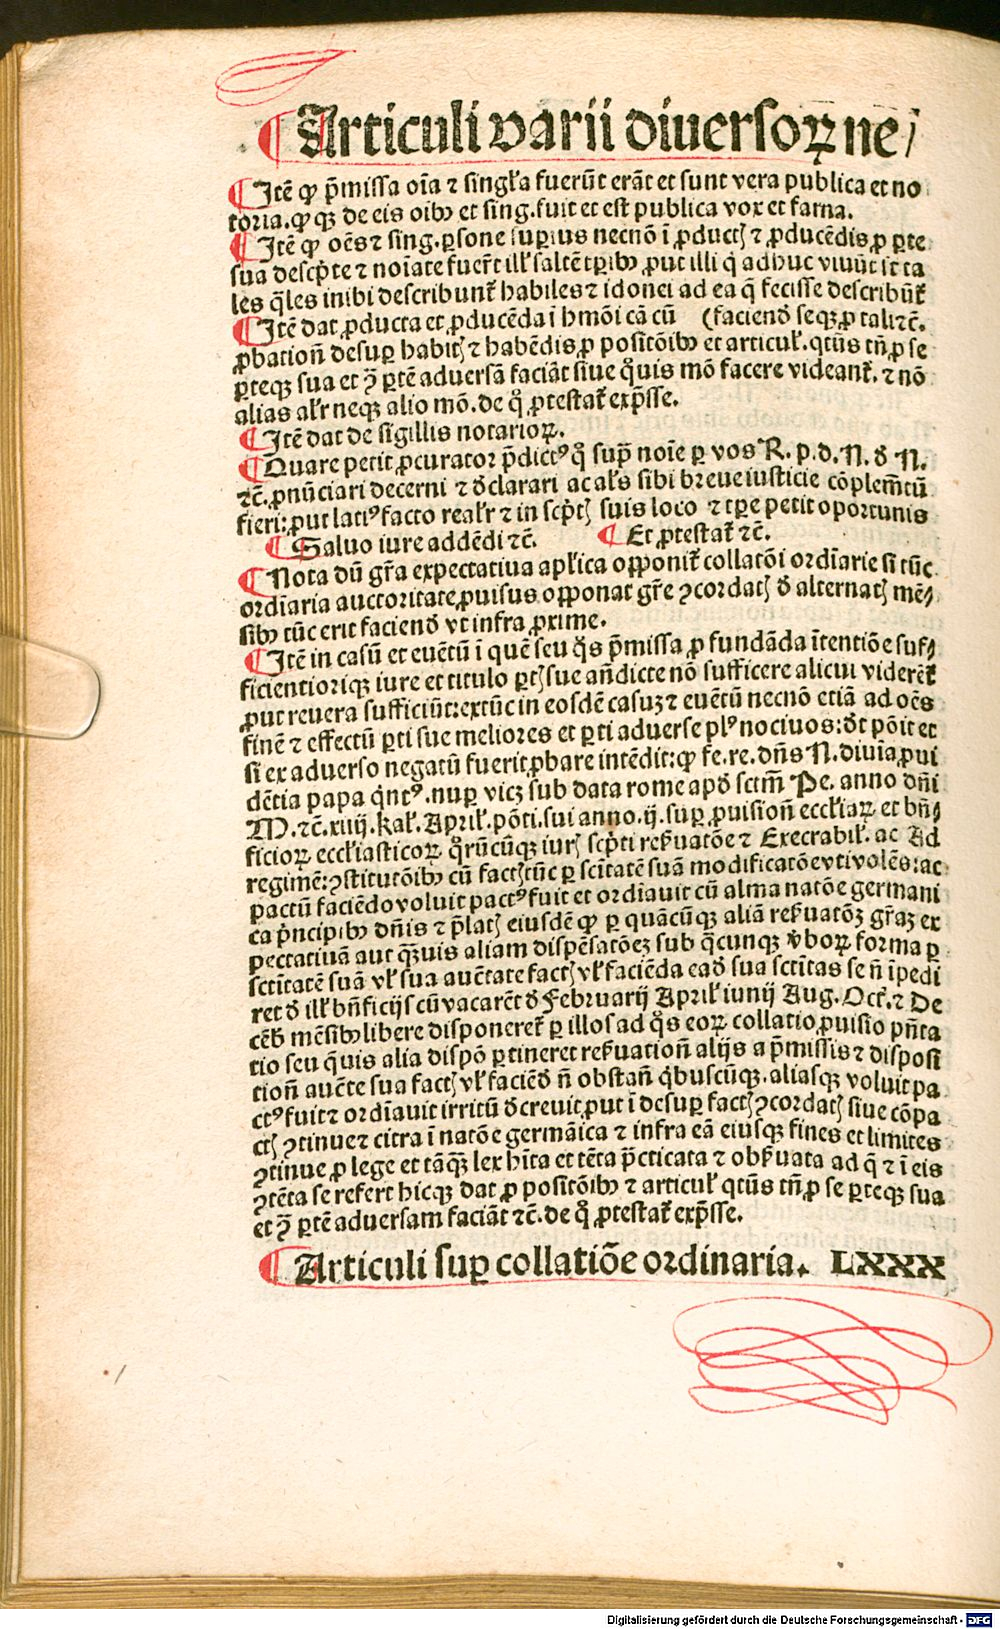 ¶ Articuli varii diuersoꝝ ne/
¶ Itē ꝙ p̄missa oīa ⁊ singl'a fuerūt erāt et sunt vera publica et no
toria. ꝙ qꝫ de eis oibꝰ et sing. fuit et est publica vox et fama.
¶ Itē ꝙ oēs ⁊ sing. ꝑsone supꝛius necnō ī ꝓductꝭ ⁊ ꝓducēdis ꝓ ꝑte
sua descp̄te ⁊ noīate fuer̄t ill' saltē tꝑibꝰ ꝓut illi q̄ adhuc viuūt sūt ta
les q̄les inibi describunt̄ habiles ⁊ idonei ad ea q̄ fecisse describūt̄
¶ Itē dat ꝓducta et ꝓducēda ī hmōi cā cū (faciend̄ seqꝫ ꝓ tali ⁊c̄.
ꝓbation̄ desuꝑ habitꝭ ⁊ habēdis ꝓ positōibꝰ et articul'. qtūs tn̄ ꝓ se
ꝑteqꝫ sua et ꝯ̄ ꝑtē aduersā faciāt siue q̊uis mō facere videant̄. ⁊ nō
alias al'r neqꝫ alio mō. de q̊ ꝓtestat̄ exp̄sse.
¶ Itē dat de sigillis notarioꝝ.
¶ Quare petit ꝓcurator p̄dictꝰ q̊ sup̄ noīe ꝑ vos R. p. d. N. ð N.
⁊c̄. ꝓnūciari decerni ⁊ ðclarari ac al's sibi breue iusticie cōplem̄tū
fieri: ꝓut latiꝰ facto real'r ⁊ in scp̄tꝭ suis loco ⁊ tꝑe petit oportunis
¶ Saluo iure addēdi ⁊c̄. ¶ Et ꝓtestat̄ ⁊c̄.
¶ Nota dū gr̄a expectatiua apl'ica opponit̄ collatōi ordīarie si tūc
ordīaria auctoritate ꝓuisus opponat gr̄e ꝯcordatꝭ ð alternatꝭ mē/
sibꝰ tūc erit faciend̄ vt infra ꝓxime.
¶ Itē in casū et euētū ī quē seu q̊s p̄missa ꝓ fundāda ītentiōe suf/
ficientioriqꝫ iure et titulo ꝑtꝭ sue an̄dicte nō sufficere alicui viderēt̄
ꝓut reuera sufficiūt: extūc in eosdē casuꝫ ⁊ euētū necnō etiā ad oēs
finē ⁊ effectū ꝑti sue meliores et ꝑti aduerse plꝰ nociuos: ðt pōit et
si ex aduerso negatū fuerit ꝓbare intēdit: ꝙ fe. re. dn̄s N. diuīa ꝓui
dētia papa q̇ntꝰ. nuꝑ vicꝫ sub data rome apð sctm̄ Pe. anno dn̄i
M. ⁊c̄. xiiij. kal'. April'. pōti. sui anno. ij. suꝑ ꝓuision̄ eccl'iaꝝ et bn̄/
ficioꝝ eccl'iasticoꝝ q̊rūcūqꝫ iurꝭ scp̄ti reẜuatōe ⁊ Execrabil'. ac Ad
regimē: ꝯstitutōibꝰ cū factꝭ tūc ꝑ scītatē suā modificatōe vti volēs: ac
pactū faciēdo voluit pactꝰ fuit et ordīauit cū alma natōe germani
ca ṗncipibꝰ dn̄is ⁊ p̄latꝭ eiusdē ꝙ ꝑ quācūqꝫ aliā reẜuatōꝫ gr̄aꝫ ex
pectatiuā aut q̄uis aliam dispēsatōeꝫ sub q̄cunqꝫ v̄boꝝ forma ꝑ
sctītatē suā vl' sua auctate factꝭ vl' faciēda eað sua sctītas se n̄ īpedi
ret ð ill' bn̄ficijs cū vacarēt ð Februarij April' iunij Aug. Oct̄. ⁊ De
cēb̄ mēsibꝰ libere disponeret̄ ꝑ illos ad q̊s eoꝝ collatio ꝓuisio pn̄ta
tio seu q̄uis alia dispō ꝑtineret reẜuation̄ alijs a p̄missis ⁊ disposi
tion̄ aucte sua factꝭ vl' faciēð n̄ obstan̄ q̇buscūqꝫ. aliasqꝫ voluit pa
ctꝰ fuit ⁊ ordīauit irritū ðcreuit ꝓut ī desuꝑ factꝭ ꝯcordatꝭ siue cōpa
ctꝭ ꝯtinue ⁊ citra ī natōe germāica ⁊ infra eā eiusqꝫ fines et limites
ꝯtinue ꝓ lege et tāqꝫ lex hīta et tēta p̄cticata ⁊ obẜuata ad q̄ ⁊ ī eis
ꝯtēta se refert hicqꝫ dat ꝓ positōibꝰ ⁊ articul' qtūs tn̄ ꝓ se ꝑteqꝫ sua
et ꝯ̄ ꝑtē aduersam faciāt ⁊c̄. de q̊ ꝓtestat̄ exp̄sse.
¶ Articuli suꝑ collatiōe ordinaria. LXXX
Digitalisierung gefördert durch die Deutsche Forschungsgemeinschaft - DFG